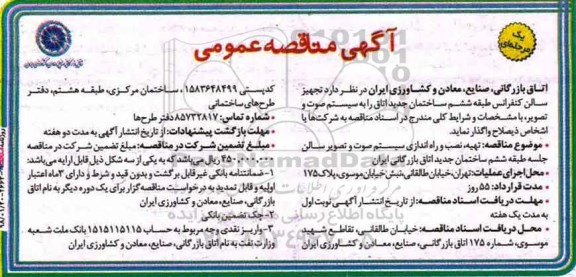 آگهی مناقصه عمومی
یک
مرحله‌ای
اتاق بازرگانی، صنایع، معادن و کشاورزی ایران در نظر دارد تجهیز
سالن کنفرانس طبقه ششم ساختمان جدید اتاق را به سیستم صوت و
تصویر، با مشخصات و شرایط کلی مندرج در اسناد مناقصه به شرکت‌ها یا
اشخاص ذیصلاح واگذار نماید.
• موضوع مناقصه: تهیه، نصب و راه اندازی سیستم صوت و تصویر سالن
جلسه طبقه ششم ساختمان جدید اتاق بازرگانی ایران
محل اجرای عملیات: تهران، خیابان طالقانی، نبش خیابان موسوی، پلاک ۱۷۵
مدت قرارداد: ۵۵ روز
• مهلت دریافت اسناد مناقصه: از تاریخ انتشار آگهی نوبت اول
به مدت یک هفته
• محل دریافت اسناد مناقصه: خیابان طالقانی، تقاطع شهید
موسوی، شماره ۱۷۵ اتاق بازرگانی، صنایع، معادن و کشاورزی ایران
کدپستی ۱۵۸۳۶۴۸۴۹۹، ساختمان مرکزی، طبقه هشتم، دفتر
طرح‌های ساختمانی
• شماره تماس: ۸۵۷۳۳۸۱۷ دفتر طرح‌ها
مهلت بازگشت پیشنهادات: از تاریخ انتشار آگهی به مدت دو هفته
• مبلغ تضمین شرکت در مناقصه: مبلغ تضمین شرکت در مناقصه
ریال می‌باشد که به یکی از سه شکل ذیل قابل ارایه می‌باشد:
۱- ضمانتنامه بانکی غیرقابل برگشت و بدون قید و شرط و دارای ۳ ماه اعتبار
اولیه و قابل تمدید به درخواست مناقصه گزار برای یک دوره دیگر به نام اتاق
بازرگانی، صنایع، معادن و کشاورزی ایران
۲- چک تضمین بانکی
۳- واریز نقدی وجه مربوط به حساب ۱۵۱۵۱۱۵۱۱۵ بانک ملت شعبه
وزارت نفت به نام اتاق بازرگانی، صنایع، معادن و کشاورزی ایران